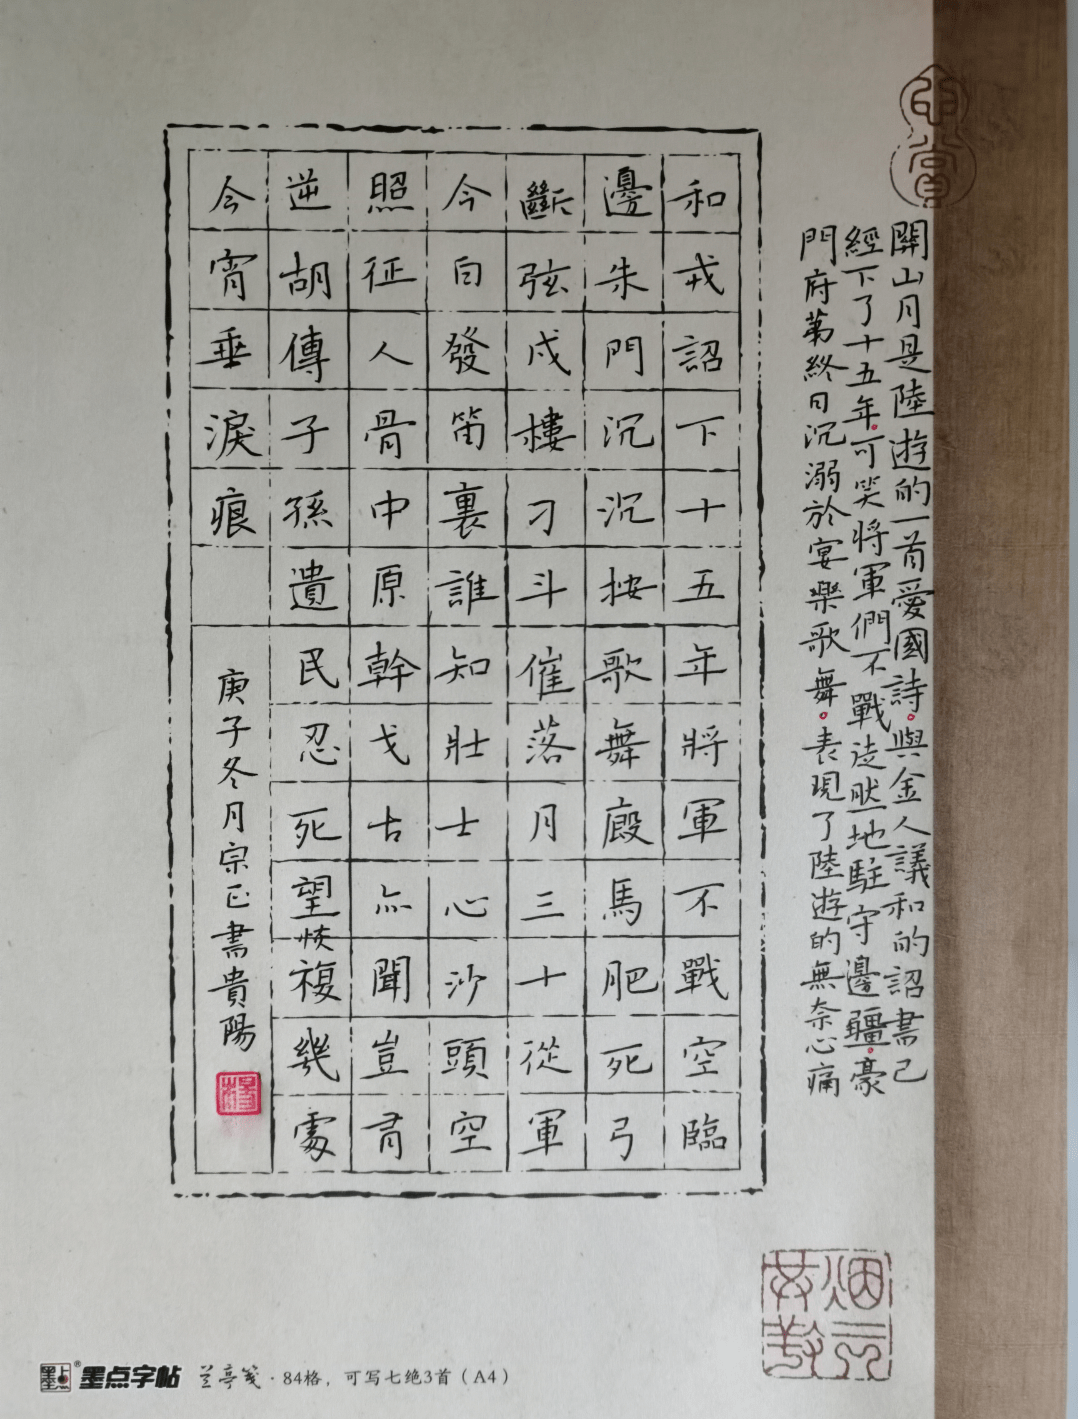 關山月是陸遊的一首愛國詩。與金人議和的詔書已
經下了十五年。可笑將軍們不戰徒然地駐守邊疆。豪
門府第終日沉溺於宴樂歌舞。表現了陸遊的無奈心痛
和戎詔下十五年將軍不戰空臨
邊朱門沉沉按歌舞廄馬肥死弓
斷弦戍樓刁斗催落月三十從軍
今白發笛裏誰知壯士心沙頭空
照征人骨中原幹戈古亦聞豈有
逆胡傳子孫遺民忍死望恢複幾處
今宵垂淚痕
庚子冬月宗正書貴陽
墨点字帖 兰亭笺·84格，可写七绝3首（A4）